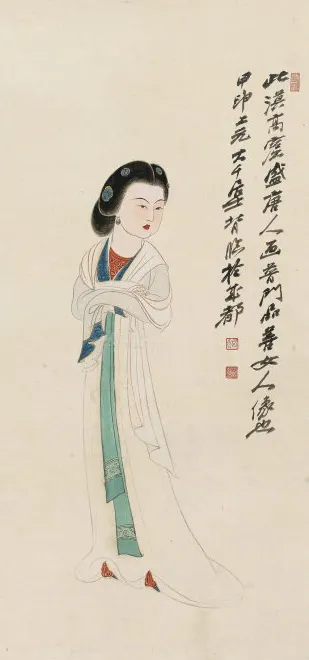 此漠高窟盛唐人画普門品善女人像也
甲申上元大千爰背臨於成都